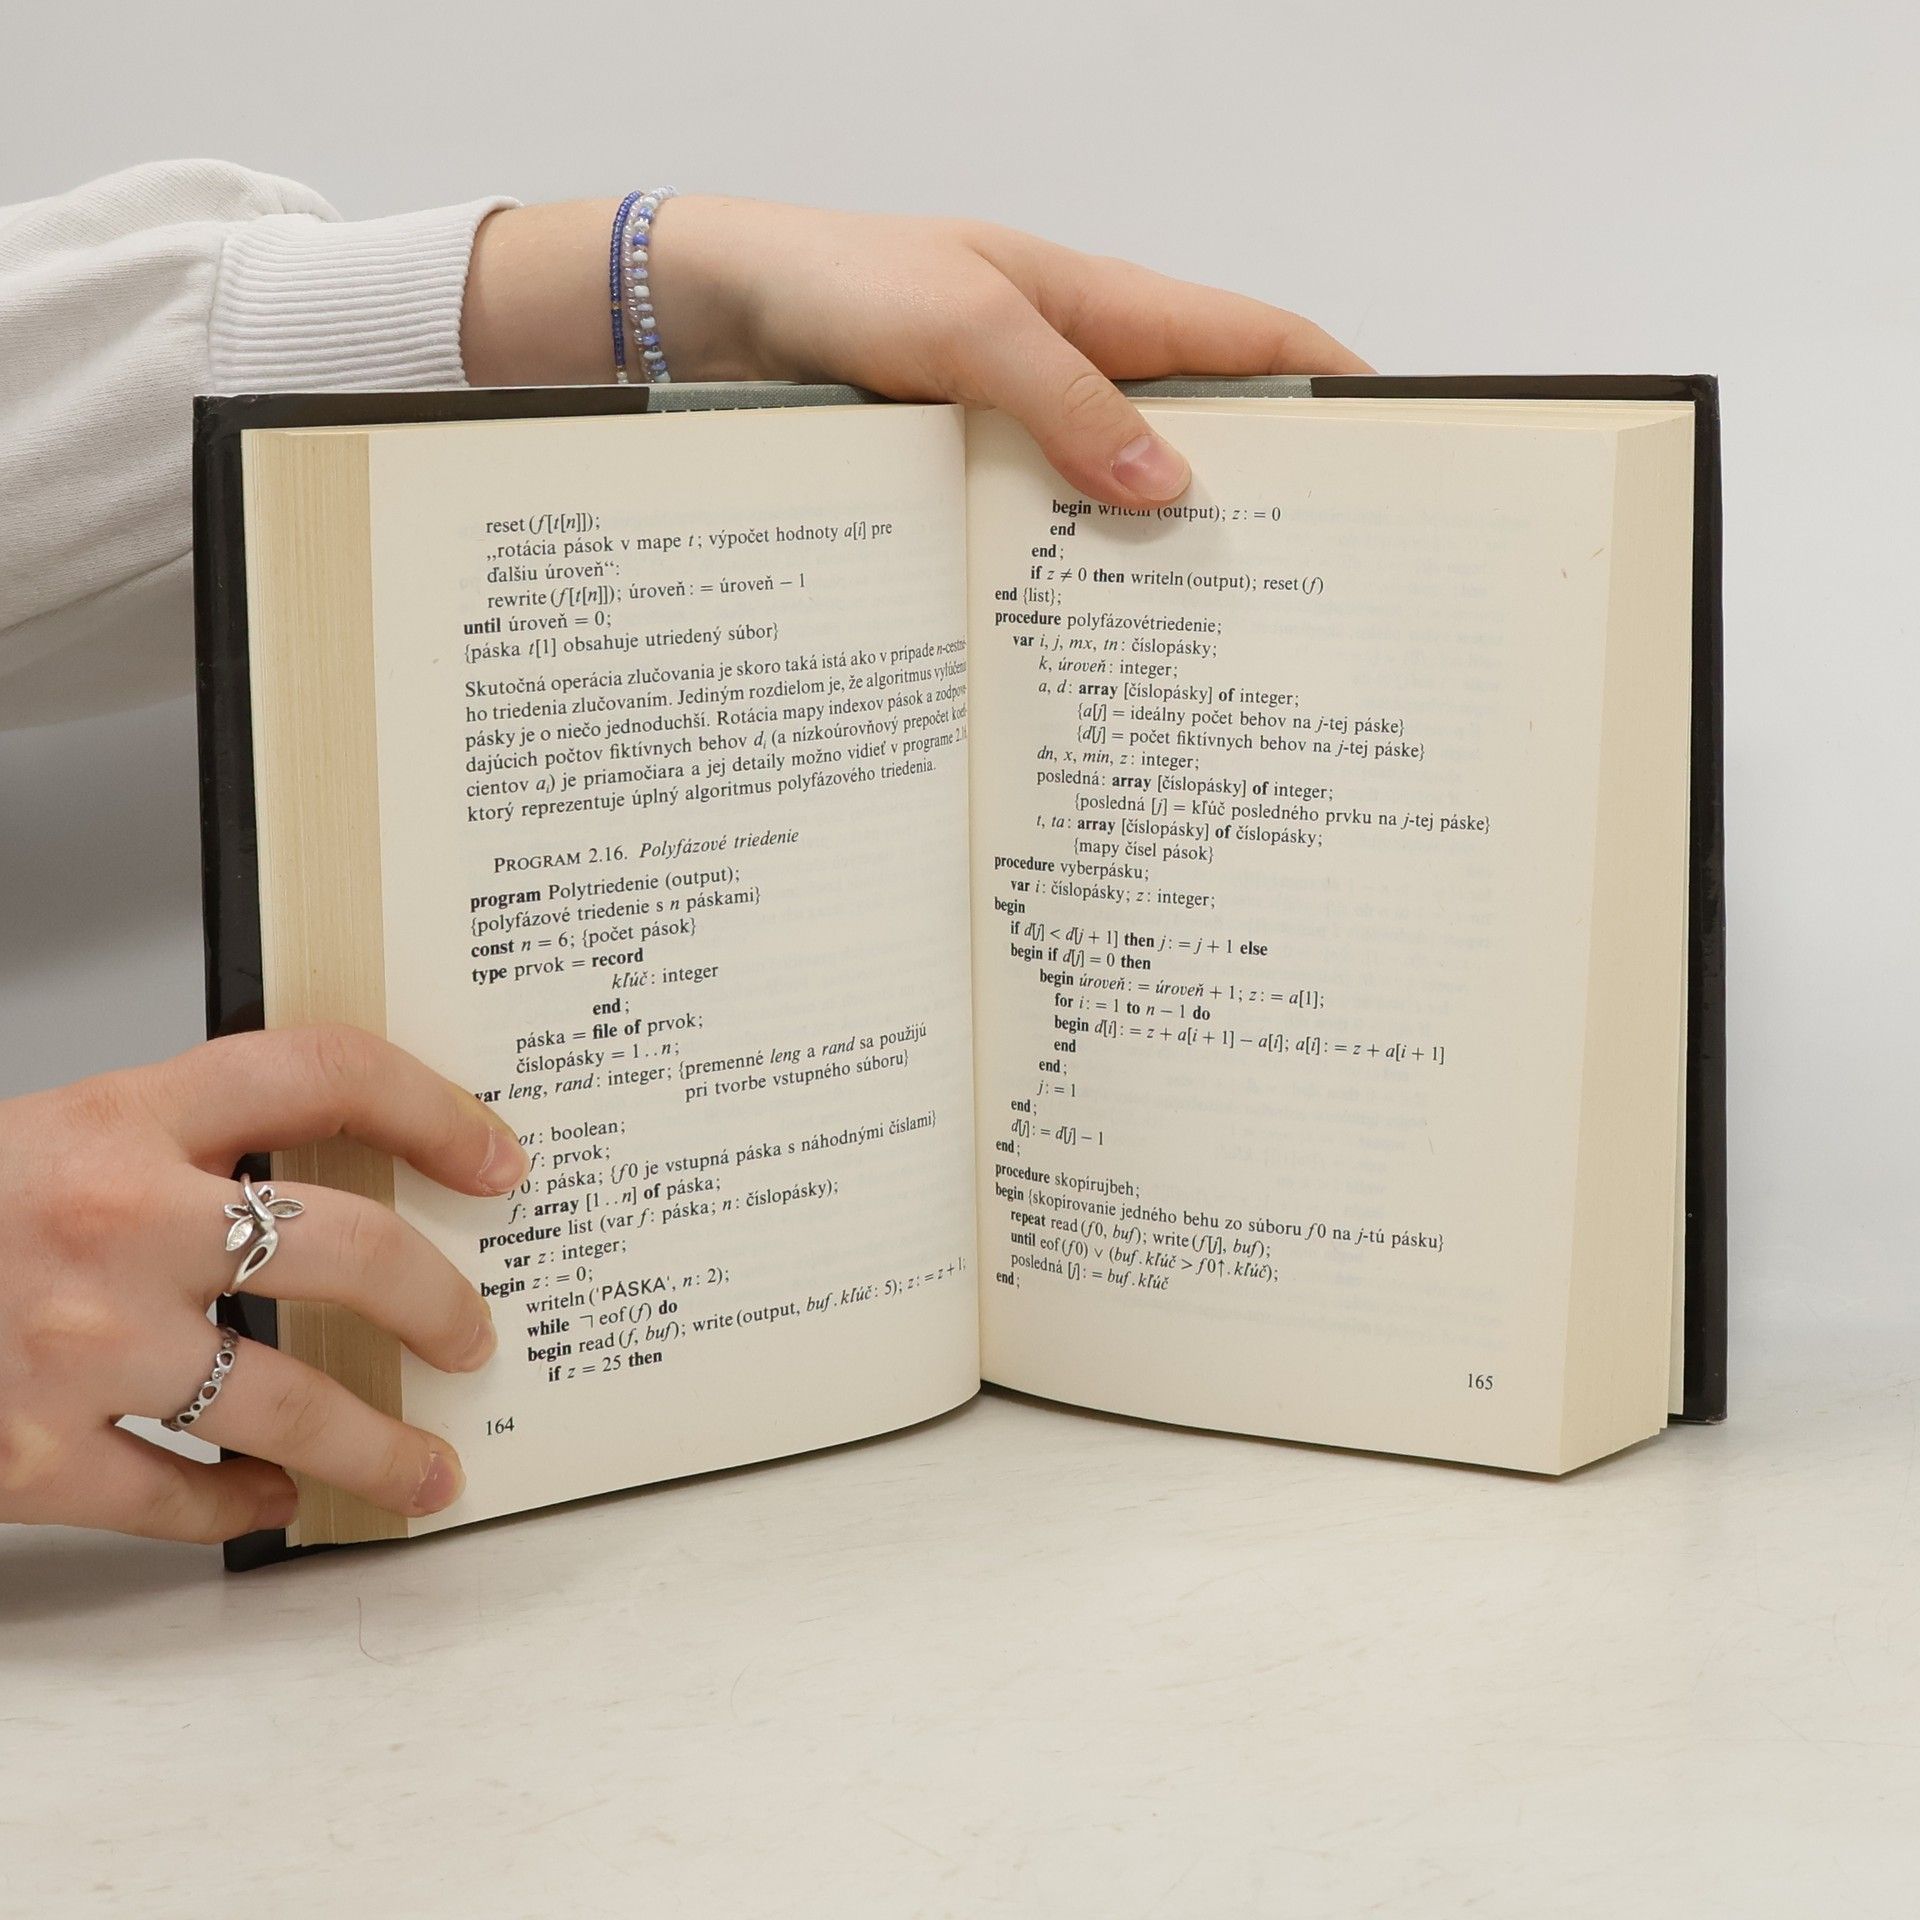 reset (f[t[n]]);
„rotácia pások v mape t; výpočet hodnoty a[i] pre
ďalšiu úroveň“:
rewrite (f[t[n]]); úroveň := úroveň − 1
until úroveň = 0;
{páska t[1] obsahuje utriedený súbor}
Skutočná operácia zlučovania je skoro taká istá ako v prípade n-cestné-
ho triedenia zlučovaním. Jediným rozdielom je, že algoritmus vylúčenia
pásky je o niečo jednoduchší. Rotácia mapy indexov pások a zodpove-
dajúcich počtov fiktívnych behov dᵢ (a nízkoúrovňový prepočet koefi-
cientov aᵢ) je priamočiara a jej detaily možno vidieť v programe 2.16,
ktorý reprezentuje úplný algoritmus polyfázového triedenia.
PROGRAM 2.16. Polyfázové triedenie
program Polytriedenie (output);
{polyfázové triedenie s n páskami}
const n = 6; {počet pások}
type prvok = record
kľúč: integer
end;
páska = file of prvok;
číslopásky = 1..n;
var leng, rand: integer; {premenné leng a rand sa použijú
pri tvorbe vstupného súboru}
: boolean;
: prvok;
f0: páska; {f0 je vstupná páska s náhodnými číslami}
f: array [1..n] of páska;
procedure list (var f: páska; n: číslopásky);
var z: integer;
begin z := 0;
writeln ('PÁSKA', n: 2);
while ¬ eof (f) do
begin read (f, buf); write (output, buf.kľúč: 5); z := z + 1;
if z = 25 then
164
begin writeln (output); z := 0
end
end;
if z ≠ 0 then writeln (output); reset (f)
end {list};
procedure polyfázovétriedenie;
var i, j, mx, tn: číslopásky;
k, úroveň: integer;
a, d: array [číslopásky] of integer;
{a[j] = ideálny počet behov na j-tej páske}
{d[j] = počet fiktívnych behov na j-tej páske}
dn, x, min, z: integer;
posledná: array [číslopásky] of integer;
{posledná [j] = kľúč posledného prvku na j-tej páske}
t, ta: array [číslopásky] of číslopásky;
{mapy čísel pások}
procedure vyberpásku;
var i: číslopásky; z: integer;
begin
if d[j] < d[j + 1] then j := j + 1 else
begin if d[j] = 0 then
begin úroveň := úroveň + 1; z := a[1];
for i := 1 to n − 1 do
begin d[i] := z + a[i + 1] − a[i]; a[i] := z + a[i + 1]
end
end;
j := 1
end;
d[j] := d[j] − 1
end;
procedure skopírujbeh;
begin {skopírovanie jedného behu zo súboru f0 na j-tú pásku}
repeat read (f0, buf); write (f[j], buf);
until eof (f0) ∨ (buf.kľúč > f0↑.kľúč);
posledná [j] := buf.kľúč
end;
165